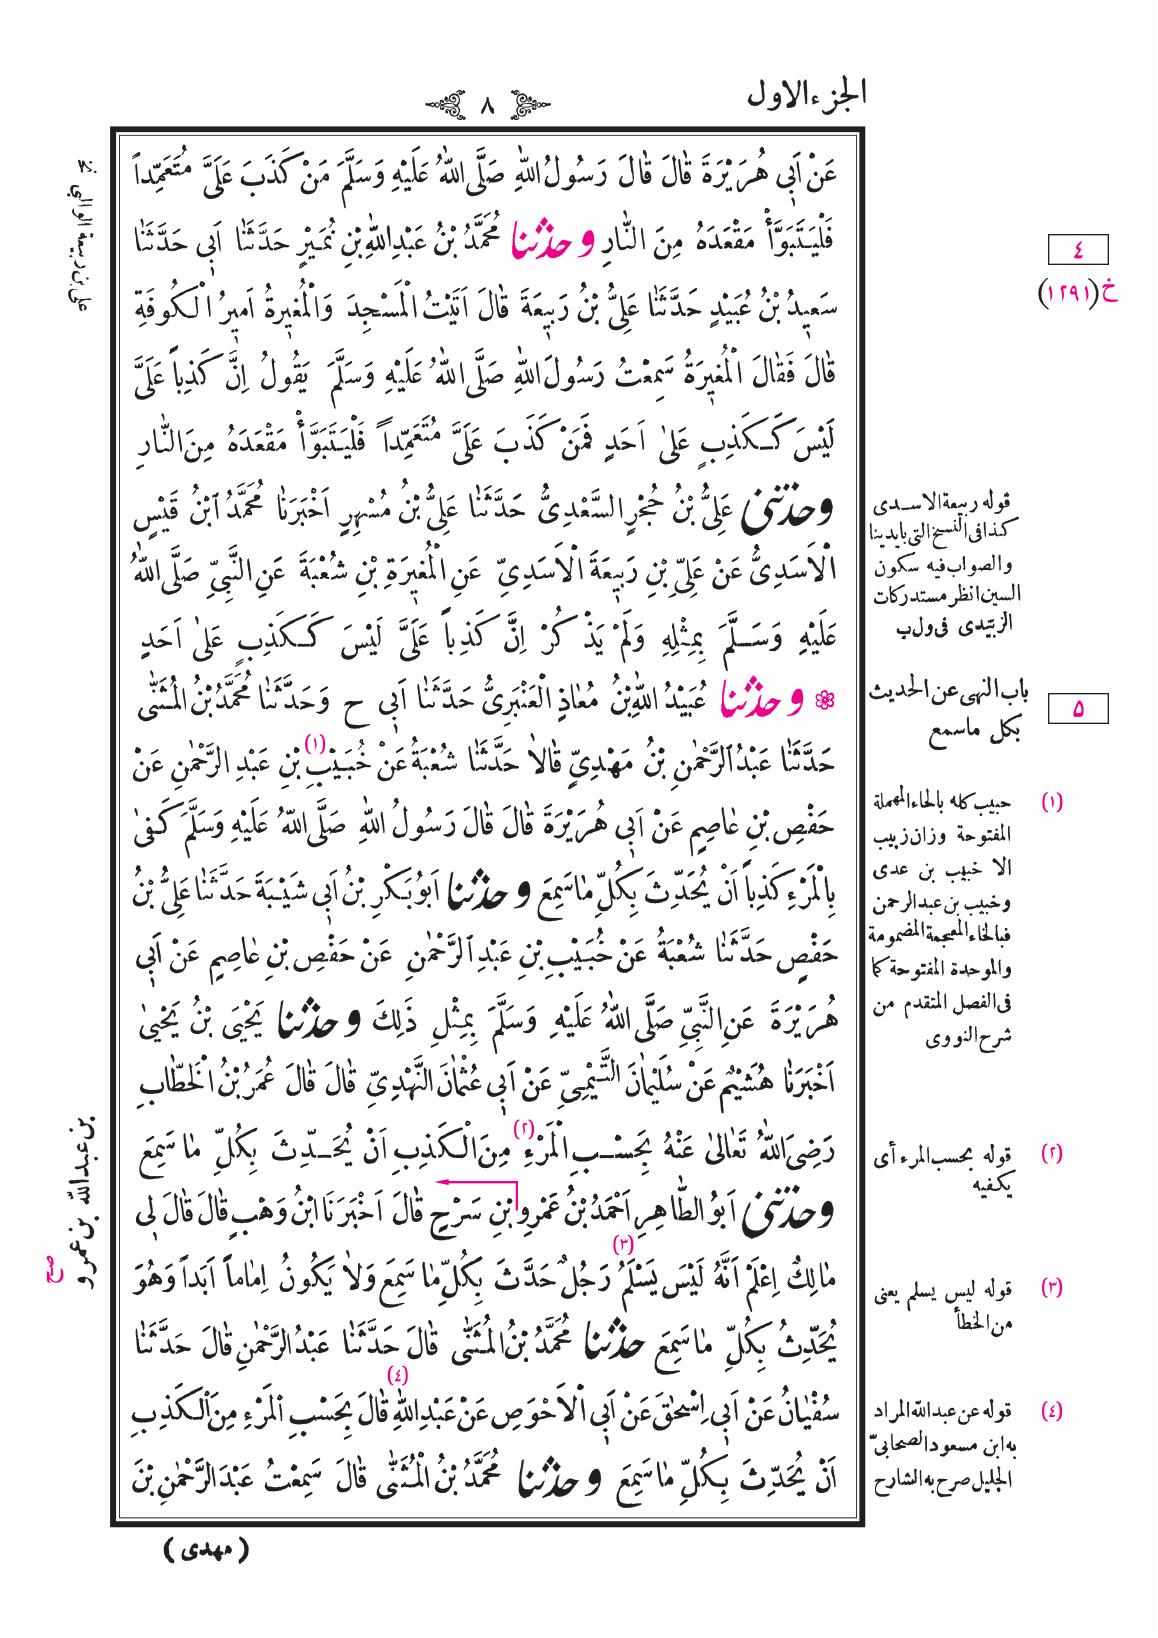 الجزء الاول
٨
عَنْ اَبِي هُرَيْرَةَ قَالَ قَالَ رَسُولُ اللّٰهِ صَلَّى اللّٰهُ عَلَيْهِ وَسَلَّمَ مَنْ كَذَبَ عَلَىَّ مُتَعَمِّداً
فَلْيَتَبَوَّأْ مَقْعَدَهُ مِنَ النَّارِ وحدثنا مُحَمَّدُ بْنُ عَبْدِ اللّٰهِ بْنِ نُمَيْرٍ حَدَّثَنَا اَبِي حَدَّثَنَا
سَعِيدُ بْنُ عُبَيْدٍ حَدَّثَنَا عَلِىُّ بْنُ رَبِيعَةَ قَالَ اَتَيْتُ الْمَسْجِدَ وَالْمُغِيرَةُ اَمِيرُ الْكُوفَةِ
قَالَ فَقَالَ الْمُغِيرَةُ سَمِعْتُ رَسُولَ اللّٰهِ صَلَّى اللّٰهُ عَلَيْهِ وَسَلَّمَ يَقُولُ اِنَّ كَذِباً عَلَىَّ
لَيْسَ كَكَذِبٍ عَلىٰ اَحَدٍ فَمَنْ كَذَبَ عَلَىَّ مُتَعَمِّداً فَلْيَتَبَوَّأْ مَقْعَدَهُ مِنَ النَّارِ
وحدثنى عَلِىُّ بْنُ حُجْرٍ السَّعْدِىُّ حَدَّثَنَا عَلِىُّ بْنُ مُسْهِرٍ اَخْبَرَنَا مُحَمَّدُ ابْنُ قَيْسٍ
الْاَسَدِىُّ عَنْ عَلِىِّ بْنِ رَبِيعَةَ الْاَسَدِىِّ عَنِ الْمُغِيرَةِ بْنِ شُعْبَةَ عَنِ النَّبِىِّ صَلَّى اللّٰهُ
عَلَيْهِ وَسَلَّمَ بِمِثْلِهِ وَلَمْ يَذْكُرْ اِنَّ كَذِباً عَلَىَّ لَيْسَ كَكَذِبٍ عَلىٰ اَحَدٍ
❁ وحدثنا عُبَيْدُ اللّٰهِ بْنُ مُعَاذٍ الْعَنْبَرِىُّ حَدَّثَنَا اَبِي ح وَحَدَّثَنَا مُحَمَّدُ بْنُ الْمُثَنّٰى
حَدَّثَنَا عَبْدُ الرَّحْمٰنِ بْنُ مَهْدِىٍّ قَالَا حَدَّثَنَا شُعْبَةُ عَنْ خُبَيْبِ (١) بْنِ عَبْدِ الرَّحْمٰنِ عَنْ
حَفْصِ بْنِ عَاصِمٍ عَنْ اَبِي هُرَيْرَةَ قَالَ قَالَ رَسُولُ اللّٰهِ صَلَّى اللّٰهُ عَلَيْهِ وَسَلَّمَ كَفىٰ
بِالْمَرْءِ كَذِباً اَنْ يُحَدِّثَ بِكُلِّ مَا سَمِعَ وحدثنا اَبُو بَكْرِ بْنُ اَبِي شَيْبَةَ حَدَّثَنَا عَلِىُّ بْنُ
حَفْصٍ حَدَّثَنَا شُعْبَةُ عَنْ خُبَيْبِ بْنِ عَبْدِ الرَّحْمٰنِ عَنْ حَفْصِ بْنِ عَاصِمٍ عَنْ اَبِي
هُرَيْرَةَ عَنِ النَّبِىِّ صَلَّى اللّٰهُ عَلَيْهِ وَسَلَّمَ بِمِثْلِ ذٰلِكَ وحدثنا يَحْيَى بْنُ يَحْيىٰ
اَخْبَرَنَا هُشَيْمٌ عَنْ سُلَيْمَانَ التَّيْمِىِّ عَنْ اَبِي عُثْمَانَ النَّهْدِىِّ قَالَ قَالَ عُمَرُ بْنُ الْخَطَّابِ
رَضِىَ اللّٰهُ تَعَالىٰ عَنْهُ بِحَسْبِ الْمَرْءِ (٢) مِنَ الْكَذِبِ اَنْ يُحَدِّثَ بِكُلِّ مَا سَمِعَ
وحدثنى اَبُو الطَّاهِرِ اَحْمَدُ بْنُ عَمْرِو بْنِ سَرْحٍ قَالَ اَخْبَرَنَا ابْنُ وَهْبٍ قَالَ قَالَ لِي
مَالِكٌ اِعْلَمْ اَنَّهُ لَيْسَ يَسْلَمُ (٣) رَجُلٌ حَدَّثَ بِكُلِّ مَا سَمِعَ وَلَا يَكُونُ اِمَاماً اَبَداً وَهُوَ
يُحَدِّثُ بِكُلِّ مَا سَمِعَ حدثنا مُحَمَّدُ بْنُ الْمُثَنّٰى قَالَ حَدَّثَنَا عَبْدُ الرَّحْمٰنِ قَالَ حَدَّثَنَا
سُفْيَانُ عَنْ اَبِي اِسْحٰقَ عَنْ اَبِي الْاَحْوَصِ عَنْ عَبْدِ اللّٰهِ (٤) قَالَ بِحَسْبِ الْمَرْءِ مِنَ الْكَذِبِ
اَنْ يُحَدِّثَ بِكُلِّ مَا سَمِعَ وحدثنا مُحَمَّدُ بْنُ الْمُثَنّٰى قَالَ سَمِعْتُ عَبْدَ الرَّحْمٰنِ بْنَ
( مهدى )
٤
خ (١٢٩١)
قوله ربيعة الاسدى
كذا فى النسخ التى بايدينا
والصواب فيه سكون
السين انظر مستدركات
الزبيدى فى ول ب
باب النهى عن الحديث
بكل ماسمع
٥
(١) حبيب كله بالحاء المهملة
المفتوحة وزان زبيب
الا خبيب بن عدى
وخبيب بن عبد الرحمن
فبالخاء المعجمة المضمومة
والموحدة المفتوحة كما
فى الفصل المتقدم من
شرح النووى
(٢) قوله بحسب المرء أى
يكفيه
(٣) قوله ليس يسلم يعنى
من الخطأ
(٤) قوله عن عبد الله المراد
به ابن مسعود الصحابىّ
الجليل صرح به الشارح
على بن ربيعة الوالبي نخ
بن عبد الله بن عمرو
صح